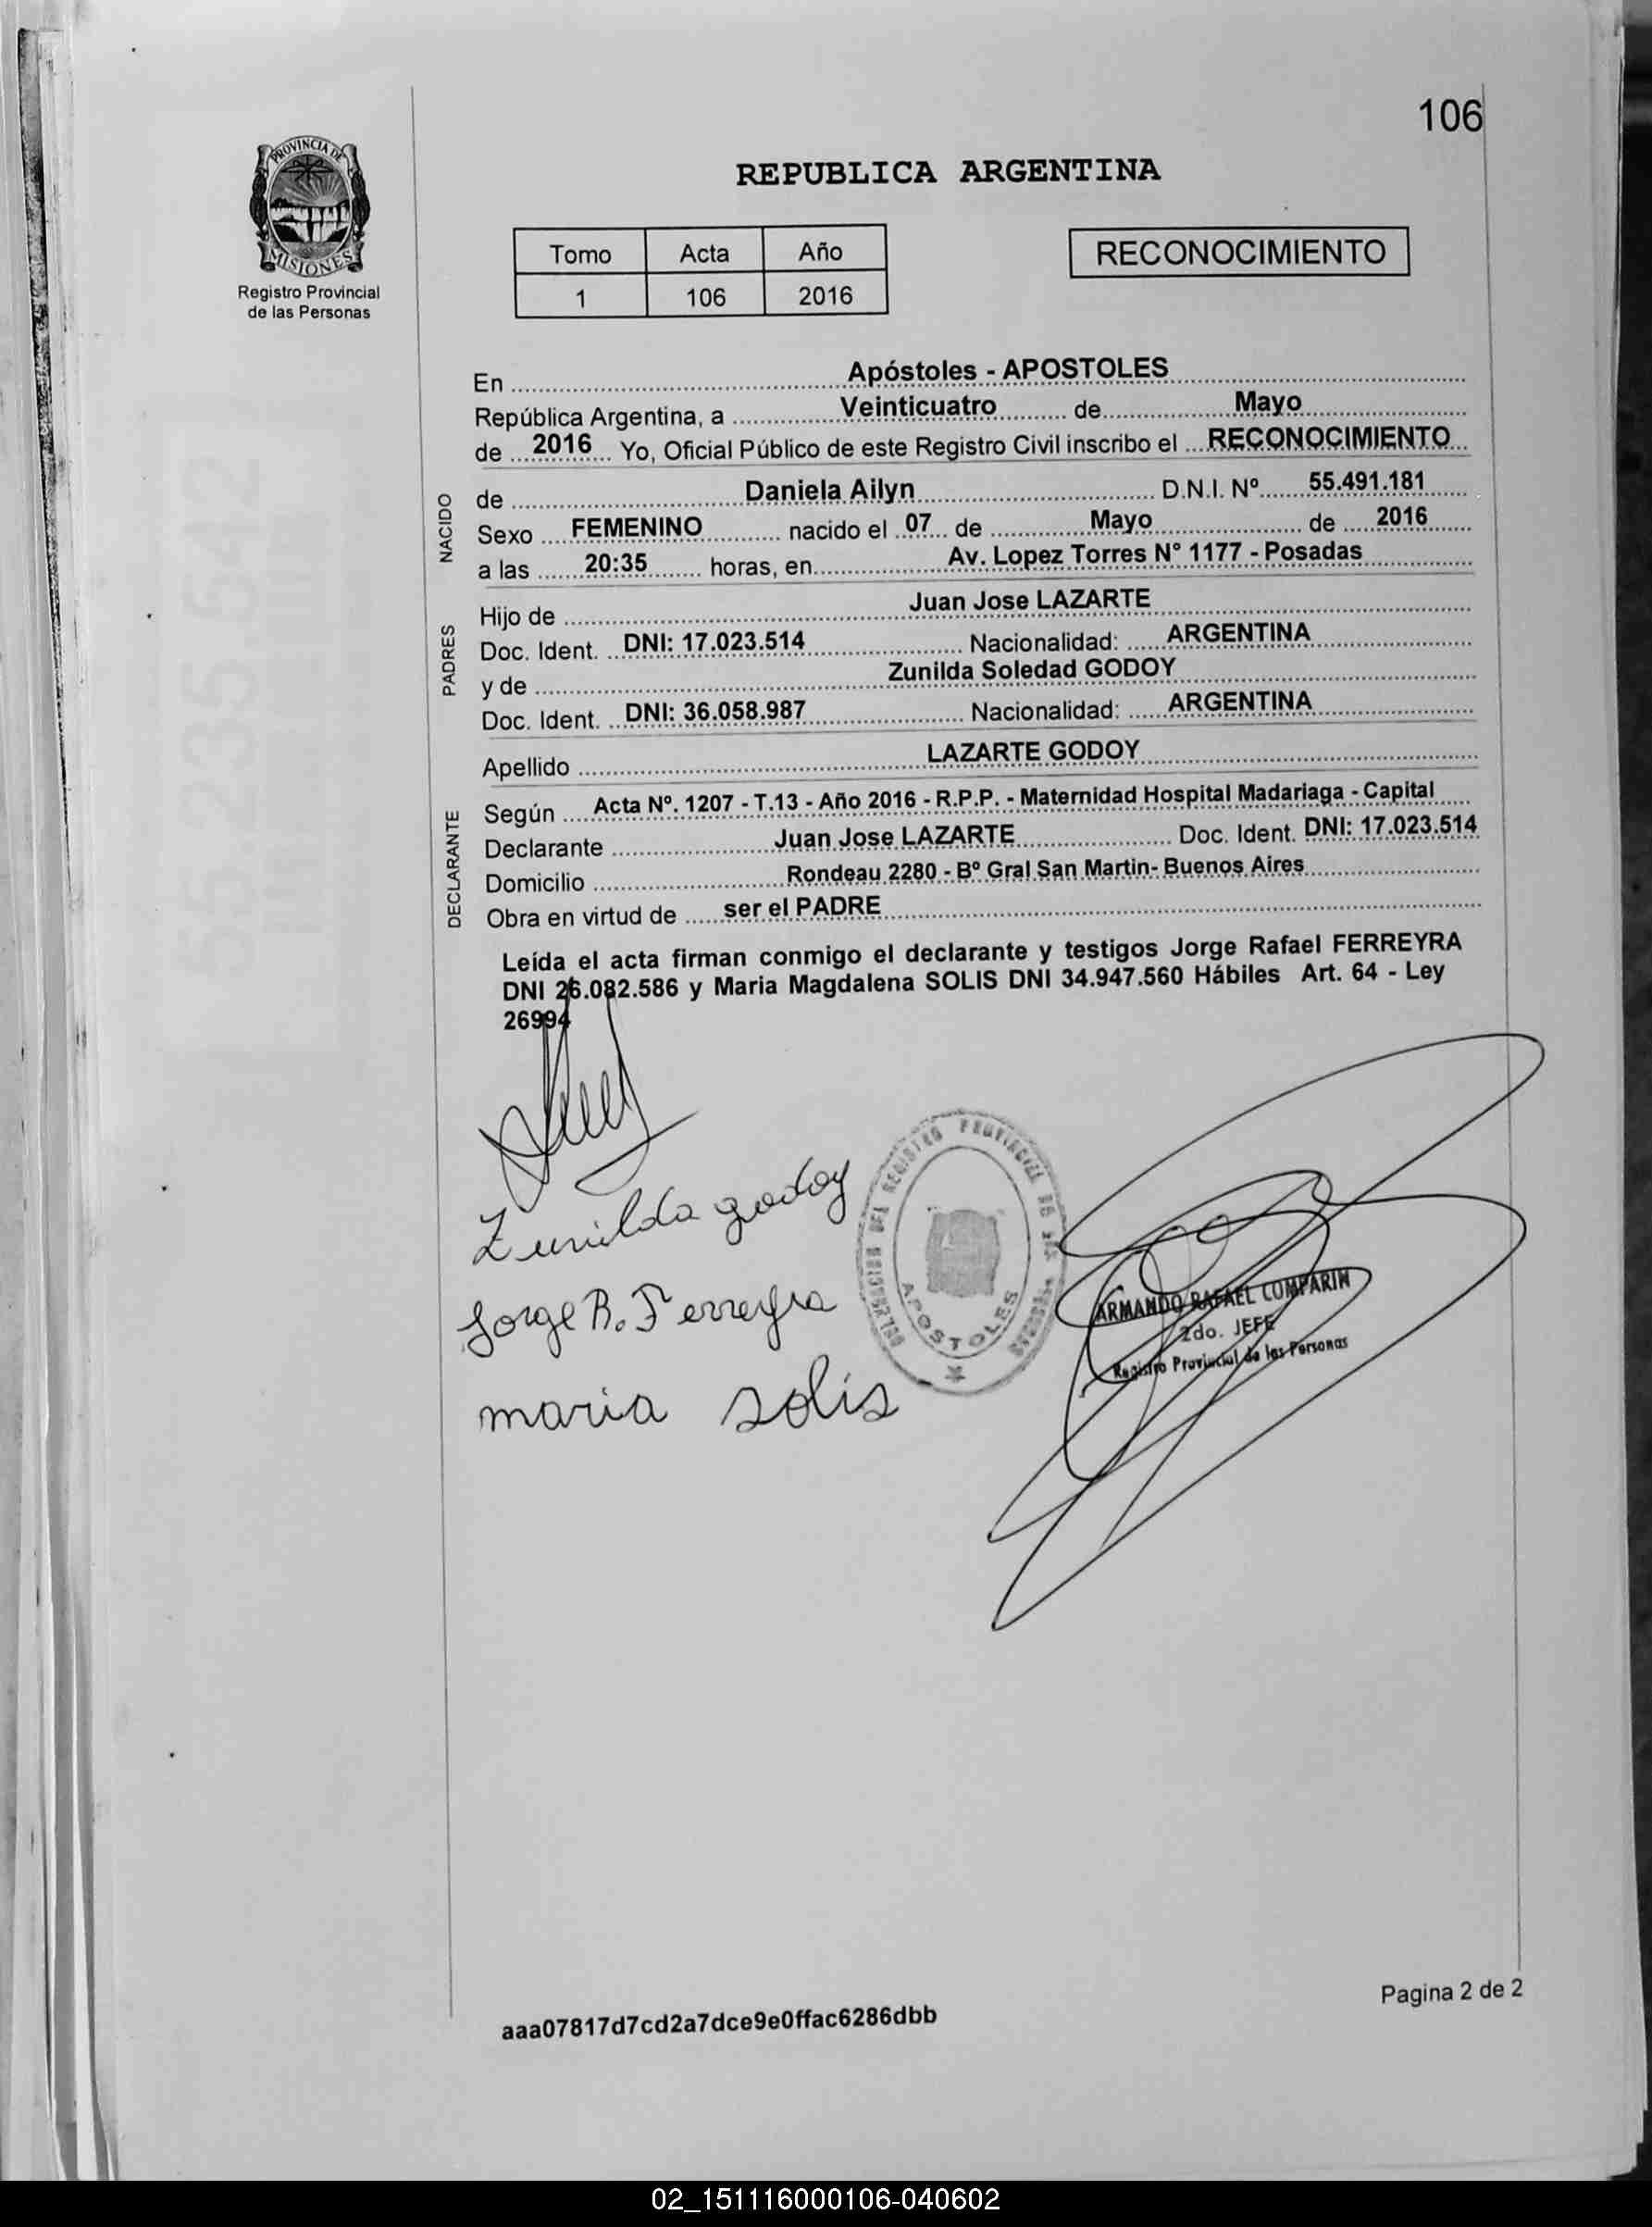 106
PROVINCIA DE
MISIONES
Registro Provincial
de las Personas
REPUBLICA ARGENTINA
Tomo Acta Año
1 106 2016
RECONOCIMIENTO
En Apóstoles - APOSTOLES
República Argentina, a Veinticuatro de Mayo
de 2016 Yo, Oficial Público de este Registro Civil inscribo el RECONOCIMIENTO
NACIDO
de Daniela Ailyn D.N.I. Nº 55.491.181
Sexo FEMENINO nacido el 07 de Mayo de 2016
a las 20:35 horas, en Av. Lopez Torres N° 1177 - Posadas
PADRES
Hijo de Juan Jose LAZARTE
Doc. Ident. DNI: 17.023.514 Nacionalidad: ARGENTINA
y de Zunilda Soledad GODOY
Doc. Ident. DNI: 36.058.987 Nacionalidad: ARGENTINA
Apellido LAZARTE GODOY
DECLARANTE
Según Acta Nº. 1207 - T.13 - Año 2016 - R.P.P. - Maternidad Hospital Madariaga - Capital
Declarante Juan Jose LAZARTE Doc. Ident. DNI: 17.023.514
Domicilio Rondeau 2280 - Bº Gral San Martin- Buenos Aires
Obra en virtud de ser el PADRE
Leída el acta firman conmigo el declarante y testigos Jorge Rafael FERREYRA
DNI 26.082.586 y Maria Magdalena SOLIS DNI 34.947.560 Hábiles Art. 64 - Ley
26994
Zunilda godoy
Jorge R. Ferreyra
maria solis
DELEGACION DEL REGISTRO PROVINCIAL DE LAS PERSONAS
APOSTOLES
ARMANDO RAFAEL COMPARIN
2do. JEFE
Registro Provincial de las Personas
Pagina 2 de 2
aaa07817d7cd2a7dce9e0ffac6286dbb
02_151116000106-040602